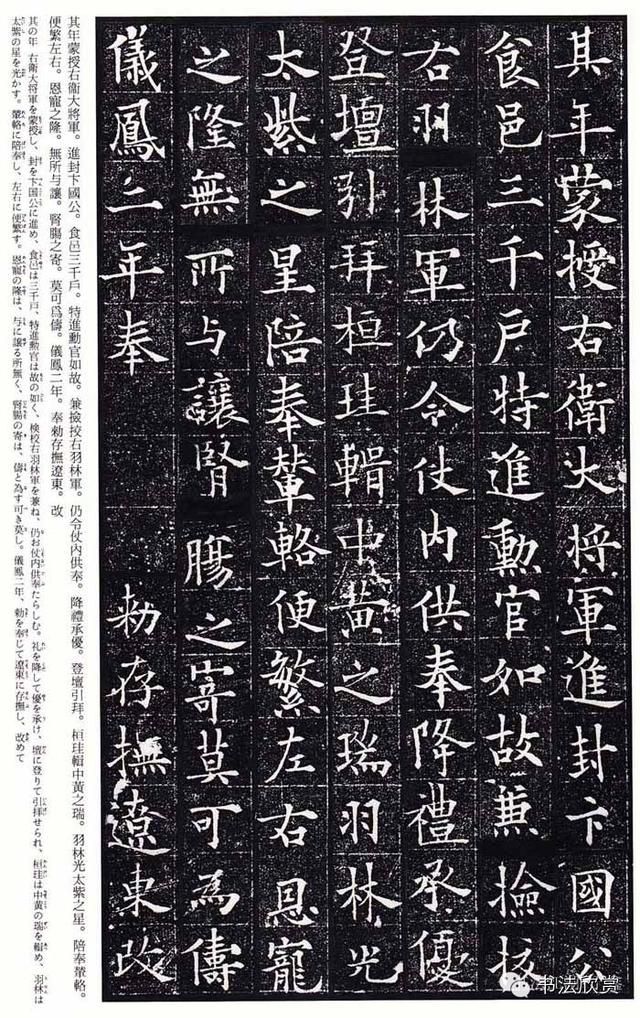 其年蒙授右衛大將軍進封卞國公
食邑三千戶特進勳官如故兼撿挍
右羽林軍仍令仗內供奉降禮承優
登壇引拜桓珪輯中黃之瑞羽林光
太紫之星陪奉輦輅便繁左右恩寵
之隆無所与讓腎腸之寄莫可為儔
儀鳳二年奉　　勑存撫遼東改
其年蒙授右衞大將軍。進封卞國公。食邑三千戶。特進勳官如故。兼撿挍右羽林軍。仍令仗內供奉。降禮承優。登壇引拜。桓珪輯中黃之瑞。羽林光太紫之星。陪奉輦輅。
便繁左右。恩寵之隆。無所与讓。腎腸之寄。莫可爲儔。儀鳳二年。奉勑存撫遼東。改
其の年　右衛大将軍を蒙授し、封を卞国公に進め、食邑は三千戸、特進勲官は故の如く、検校右羽林軍を兼ね、仍お仗内供奉たらしむ。礼を降して優を承け、壇に登りて引拝せられ、桓珪は中黄の瑞を輯め、羽林は
太紫の星を光かす。輦輅に陪奉し、左右に便繁す。恩寵の隆は、与に譲る所無く、腎腸の寄は、儔と為す可き莫し。儀鳳二年、勅を奉じて遼東に存撫し、改めて
书法欣赏